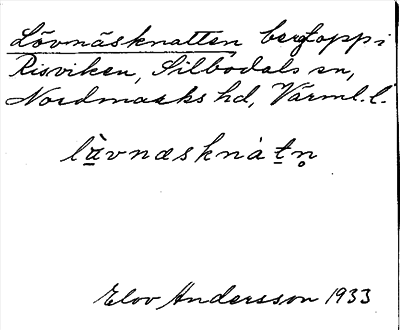 Lövnäsknatten bergtopp i
Risviken, Silbodals sn,
Nordmarks hd, Värml. l.
lä̀vnæsknàt̲n̥
Elov Andersson 1933